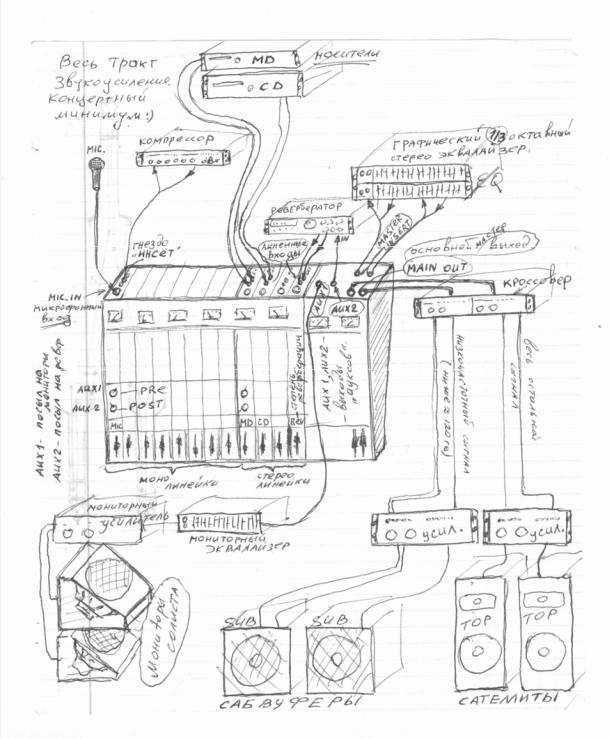 Весь тракт
звукоусиления.
концертный
минимум:)
MD
носители
CD
MIC.
компрессор
ГРАФИЧЕСКИЙ 1/3 октавный
стерео эквалайзер.
EQ
РЕВЕРБЕРАТОР
IN
MASTER
INSERT
гнездо
"инсет"
Линейные
входы
основной мастер выход
MAIN OUT
кроссовер
MIC. IN
микрофонный
вход
AUX1
AUX2
AUX1 - посыл на
мониторы
AUX2 - посыл на ревер
AUX1
PRE
AUX2
POST
MIC
MD
CD
Rev
степень
реверберации
AUX1, AUX2 -
выходы
моно
линейки
стерео
линейки
низкочастотного сигнала
(ниже 120 гц)
Весь остальной
сигнал
мониторный
усилитель
мониторный
эквалайзер
усил.
усил.
Мониторы
солиста
SUB
SUB
TOP
TOP
САБВУФЕРЫ
САТЕЛЛИТЫ